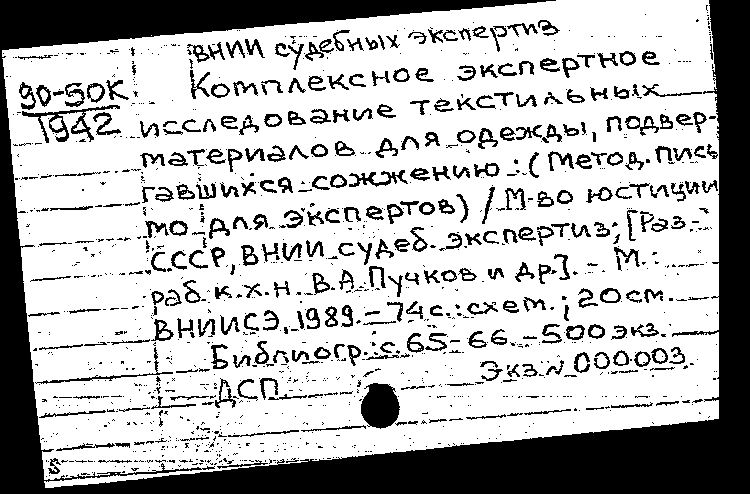 ВНИИ судебных экспертиз
90-50К
1942
Комплексное экспертное
исследование текстильных
материалов для одежды, подвер-
гавшихся сожжению : (Метод. пись
мо для экспертов) / М-во юстиции
СССР, ВНИИ судеб. экспертиз; [Раз-
раб. к.х.н. В.А. Пучков и др.]. - М. :
ВНИИСЭ, 1989. - 74 с. : схем. ; 20 см.
Библиогр.: с. 65-66. - 500 экз.
ДСП. Экз. № 000003